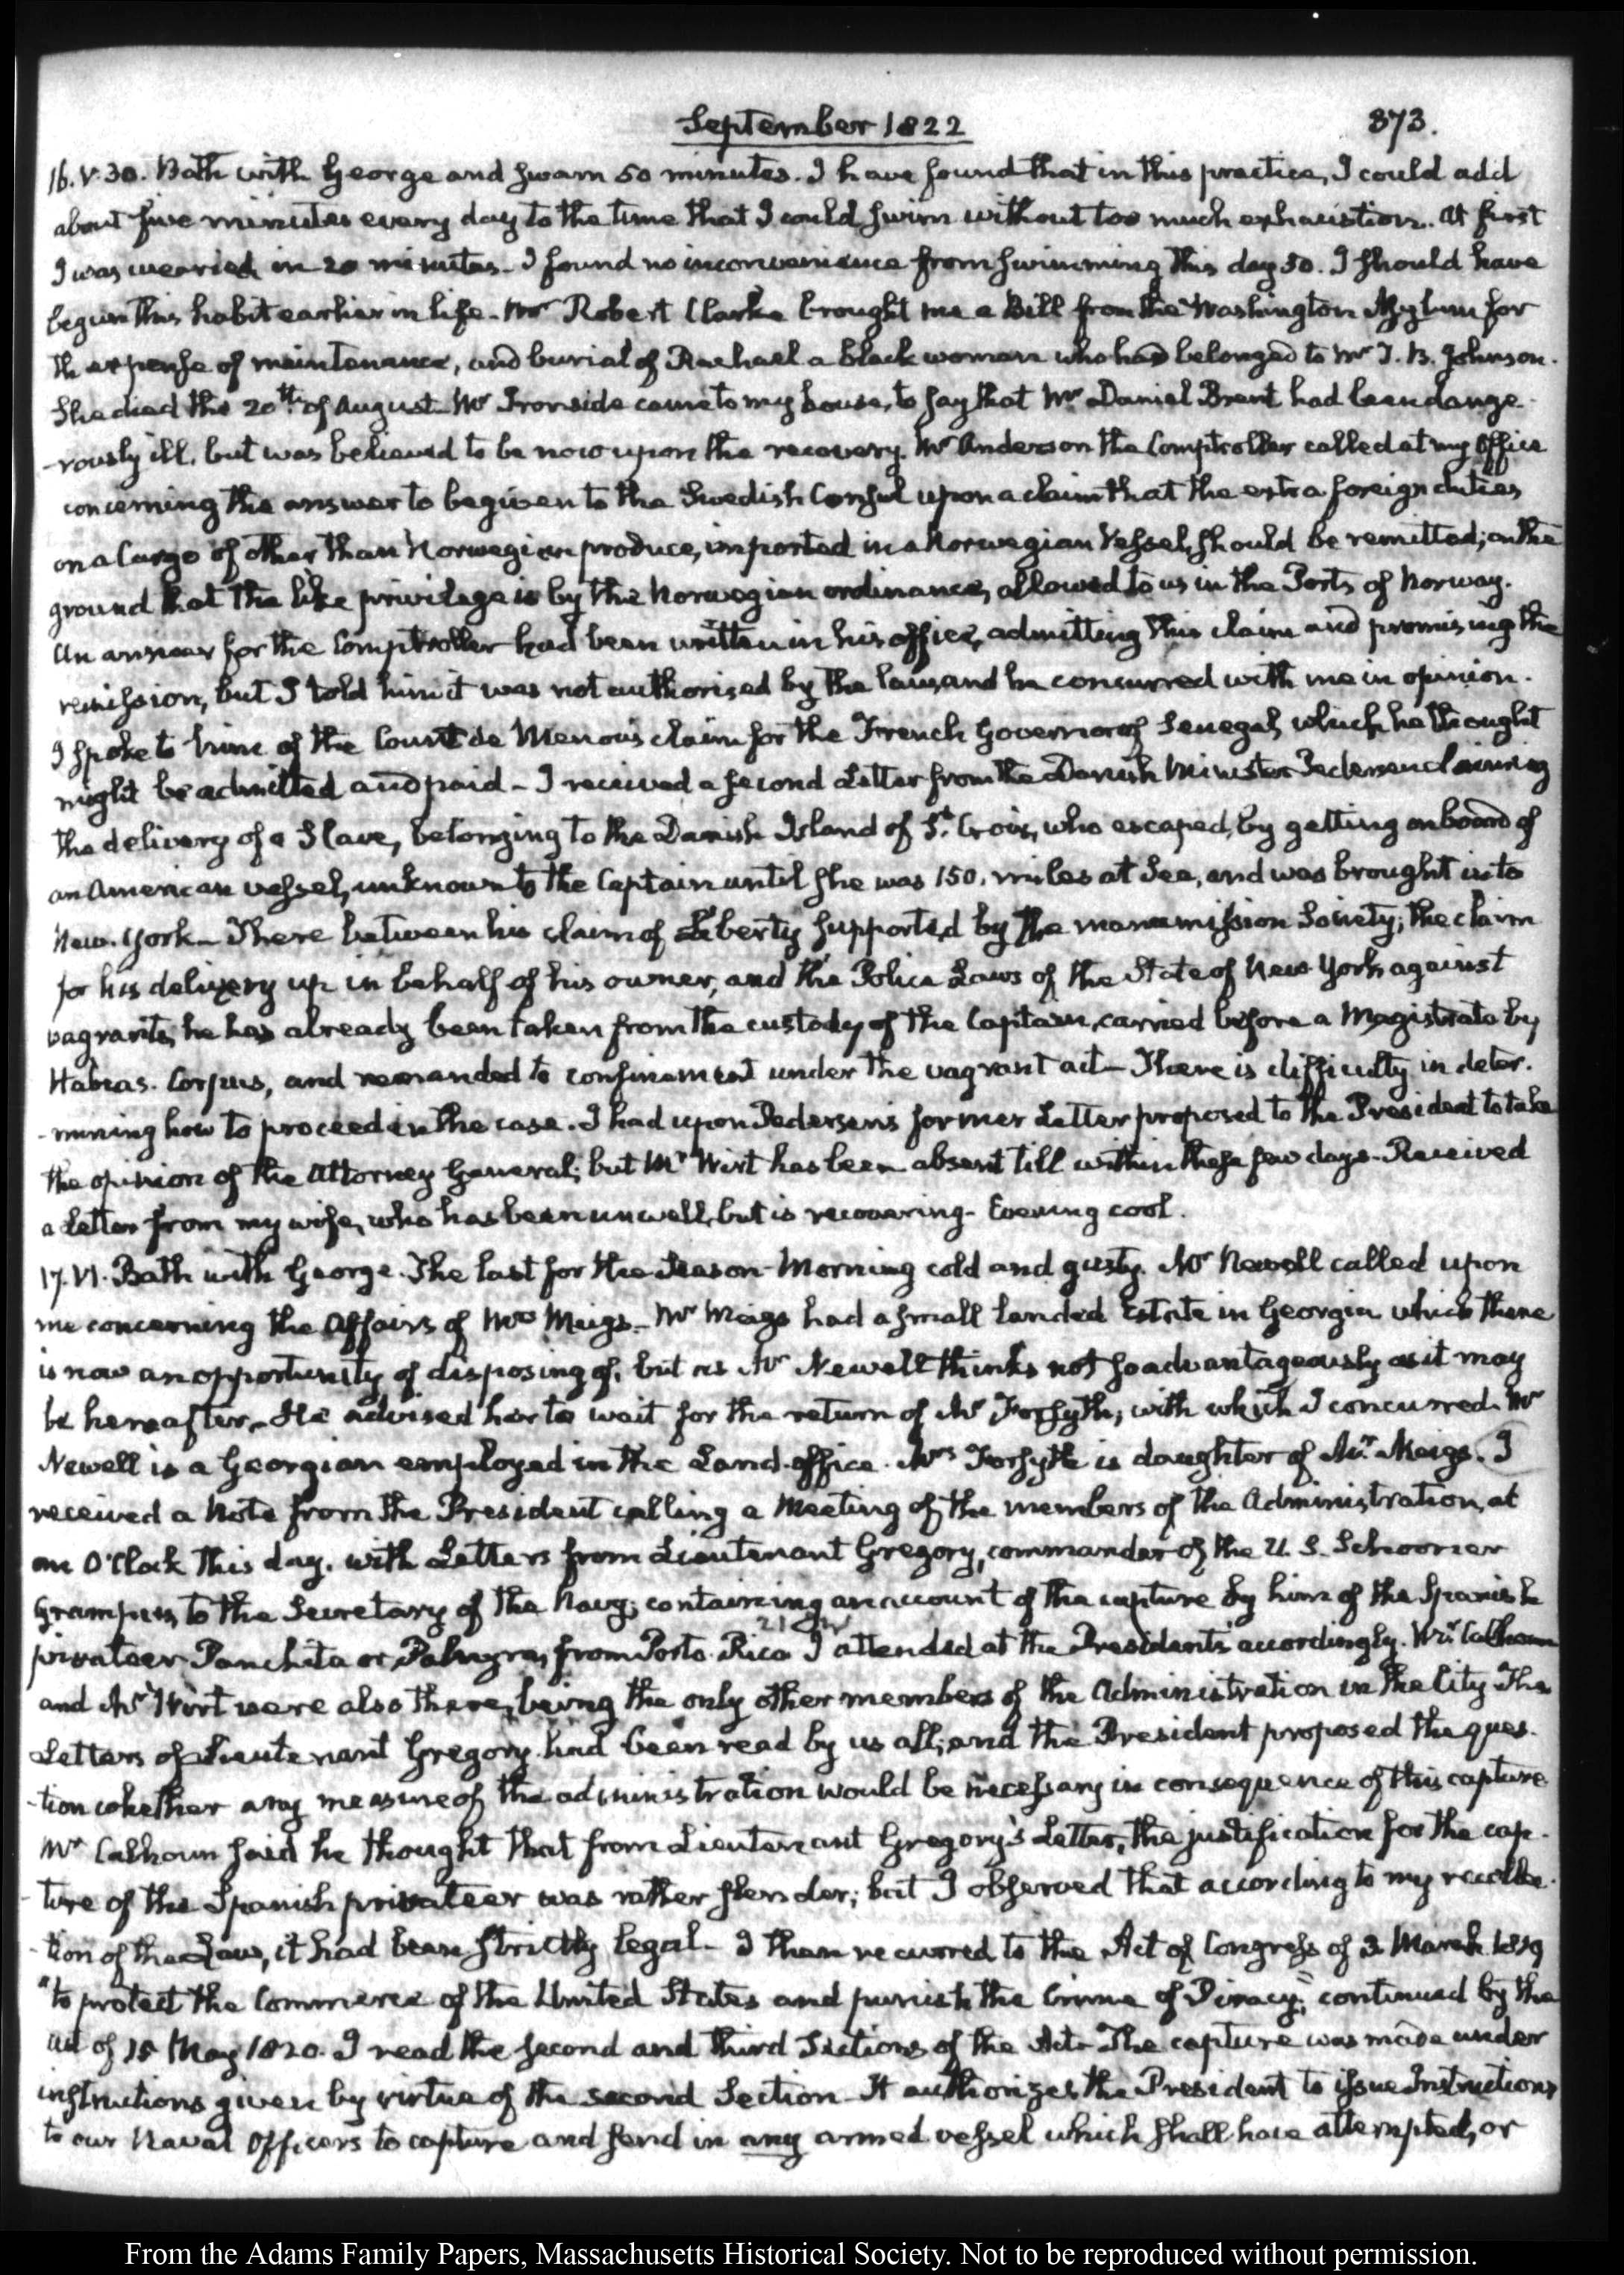 September 1822
373.
16. V. 30. Bath with George and swam 50 minutes. I have found that in this practice, I could add
about five minutes every day to the time that I could swim without too much exhaustion. At first
I was wearied in 20 minutes. I found no inconvenience from swimming this day 50. I should have
begun this habit earlier in life. Mr Robert Clarke brought me a Bill from the Washington Asylum for
the expense of maintenance, and burial of Rachael a black woman who had belonged to Mr T. B. Johnson.
She died the 20th of August. Mr Ironside came to my house, to say that Mr Daniel Brent had been dange-
-rously ill, but was believed to be now upon the recovery. Mr Anderson the Comptroller called at my Office
concerning the answer to be given to the Swedish Consul upon a claim that the extra foreign duties
on a Cargo of other than Norwegian produce, imported in a Norwegian Vessel, should be remitted; on the
ground that the like privilege is by the Norwegian ordinance, allowed to us in the Ports of Norway.
An answer for the Comptroller had been written in his office, admitting this claim and promising the
remission, but I told him it was not authorised by the law, and he concurred with me in opinion.
I spoke to him of the Count de Menou's claim for the French Governor of Senegal, which he thought
might be admitted and paid - I received a second Letter from the Danish Minister Pedersen claiming
the delivery of a Slave, belonging to the Danish Island of St. Croix, who escaped, by getting on board of
an American vessel, unknown to the Captain until she was 150. miles at Sea, and was brought into
New. York - There between his claim of Liberty supported by the manumission Society; the claim
for his delivery up in behalf of his owner, and the Police Laws of the State of New York against
vagrants, he has already been taken from the custody of the Captain, carried before a Magistrate by
Habeas. Corpus, and remanded to confinement under the vagrant act - There is difficulty in deter.
-mining how to proceed in the case. I had upon Pedersen's former Letter proposed to the President to take
the opinion of the Attorney General; but Mr Wirt has been absent till within these few days - Received
a Letter from my wife, who has been unwell, but is recovering - Evening cool.
17. VI. Bath with George. The last for the Season - Morning cold and gusty. Mr Newell called upon
me concerning the Affairs of Mrs Meigs - Mr Meigs had a small landed Estate in Georgia which there
is now an opportunity of disposing of, but as Mr Newell thinks not so advantageously as it may
be hereafter. He advised her to wait for the return of Mr Forsyth, with which I concurred. Mr
Newell is a Georgian employed in the Land-office. Mrs Forsyth is daughter of Mr. Meigs. I
received a Note from the President calling a Meeting of the members of the Administration, at
one O'Clock this day, with Letters from Lieutenant Gregory, commander of the U. S. Schooner
Grampus, to the Secretary of the Navy; containing an account of the capture by him of the Spanish
privateer Panchita or Palmyra, from Porto Rico I attended at the Presidents accordingly. Mr. Calhoun
and Mr Wirt were also there, being the only other members of the Administration in the City The
Letters of Lieutenant Gregory had been read by us all; and the President proposed the ques-
-tion whether any measure of the administration would be necessary in consequence of this capture
Mr Calhoun said he thought that from Lieutenant Gregory's Letter, the justification for the cap-
-ture of the Spanish privateer was rather slender; but I observed that according to my recollec-
-tion of the Law, it had been strictly legal - I then recurred to the Act of Congress of 3 March 1819
"to protect the Commerce of the United States and punish the Crime of Piracy;" continued by the
act of 15 May 1820. I read the second and third Sections of the Act - The capture was made under
instructions given by virtue of the second Section - It authorizes the President to issue Instructions
to our Naval Officers to capture and send in any armed vessel which shall have attempted, or
From the Adams Family Papers, Massachusetts Historical Society. Not to be reproduced without permission.